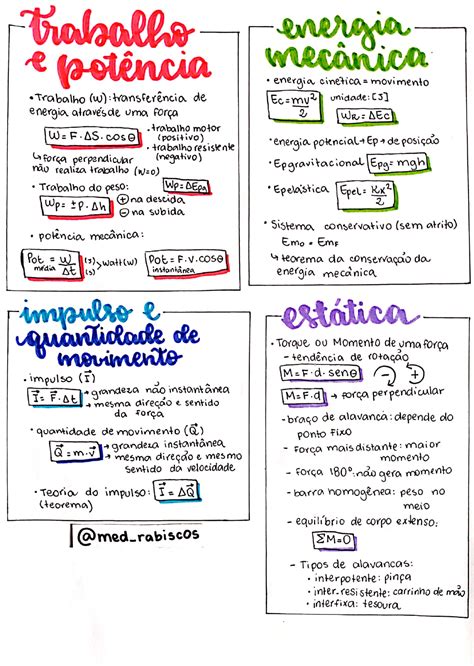 trabalho
e potência
• Trabalho (W): transferência de
energia através de uma força
W = F · ΔS · cosθ
• trabalho motor
(positivo)
• trabalho resistente
(negativo)
↳ força perpendicular
não realiza trabalho (W=0)
• Trabalho do peso:
Wp = ΔEpg
Wp = ±P · Δh
⊕ na descida
⊖ na subida
• potência mecânica:
Pot = W/Δt
média
(J)
(s)
> Watt (W)
Pot = F.v.cosθ
instantânea
energia
mecânica
• energia cinética = movimento
Ec = mv²/2
unidade: [J]
WR = ΔEc
• energia potencial → Ep → de posição
• Ep gravitacional
Epg = mgh
• Epelástica
Epel = Kx²/2
• Sistema conservativo (sem atrito)
Emo = Emf
↳ teorema da conservação da
energia mecânica
impulso e
quantidade de
movimento
• impulso (I⃗)
I⃗ = F⃗ · Δt
→ grandeza não instantânea
→ mesma direção e sentido
da força
• quantidade de movimento (Q⃗)
Q⃗ = m · v⃗
→ grandeza instantânea
→ mesma direção e mesmo
sentido da velocidade
• Teoria do impulso:
(teorema)
I⃗ = ΔQ⃗
@med_rabiscos
estática
• Torque ou Momento de uma força
- tendência de rotação
M = F · d · senθ
- +
M = F · d
→ força perpendicular
- braço de alavanca: depende do
ponto fixo
- força mais distante: maior
momento
- força 180°: não gera momento
- barra homogênea: peso no
meio
- equilíbrio de corpo extenso:
ΣM=0
- Tipos de alavancas:
• interpotente: pinça
• inter.resistente: carrinho de mão
• interfixa: tesoura